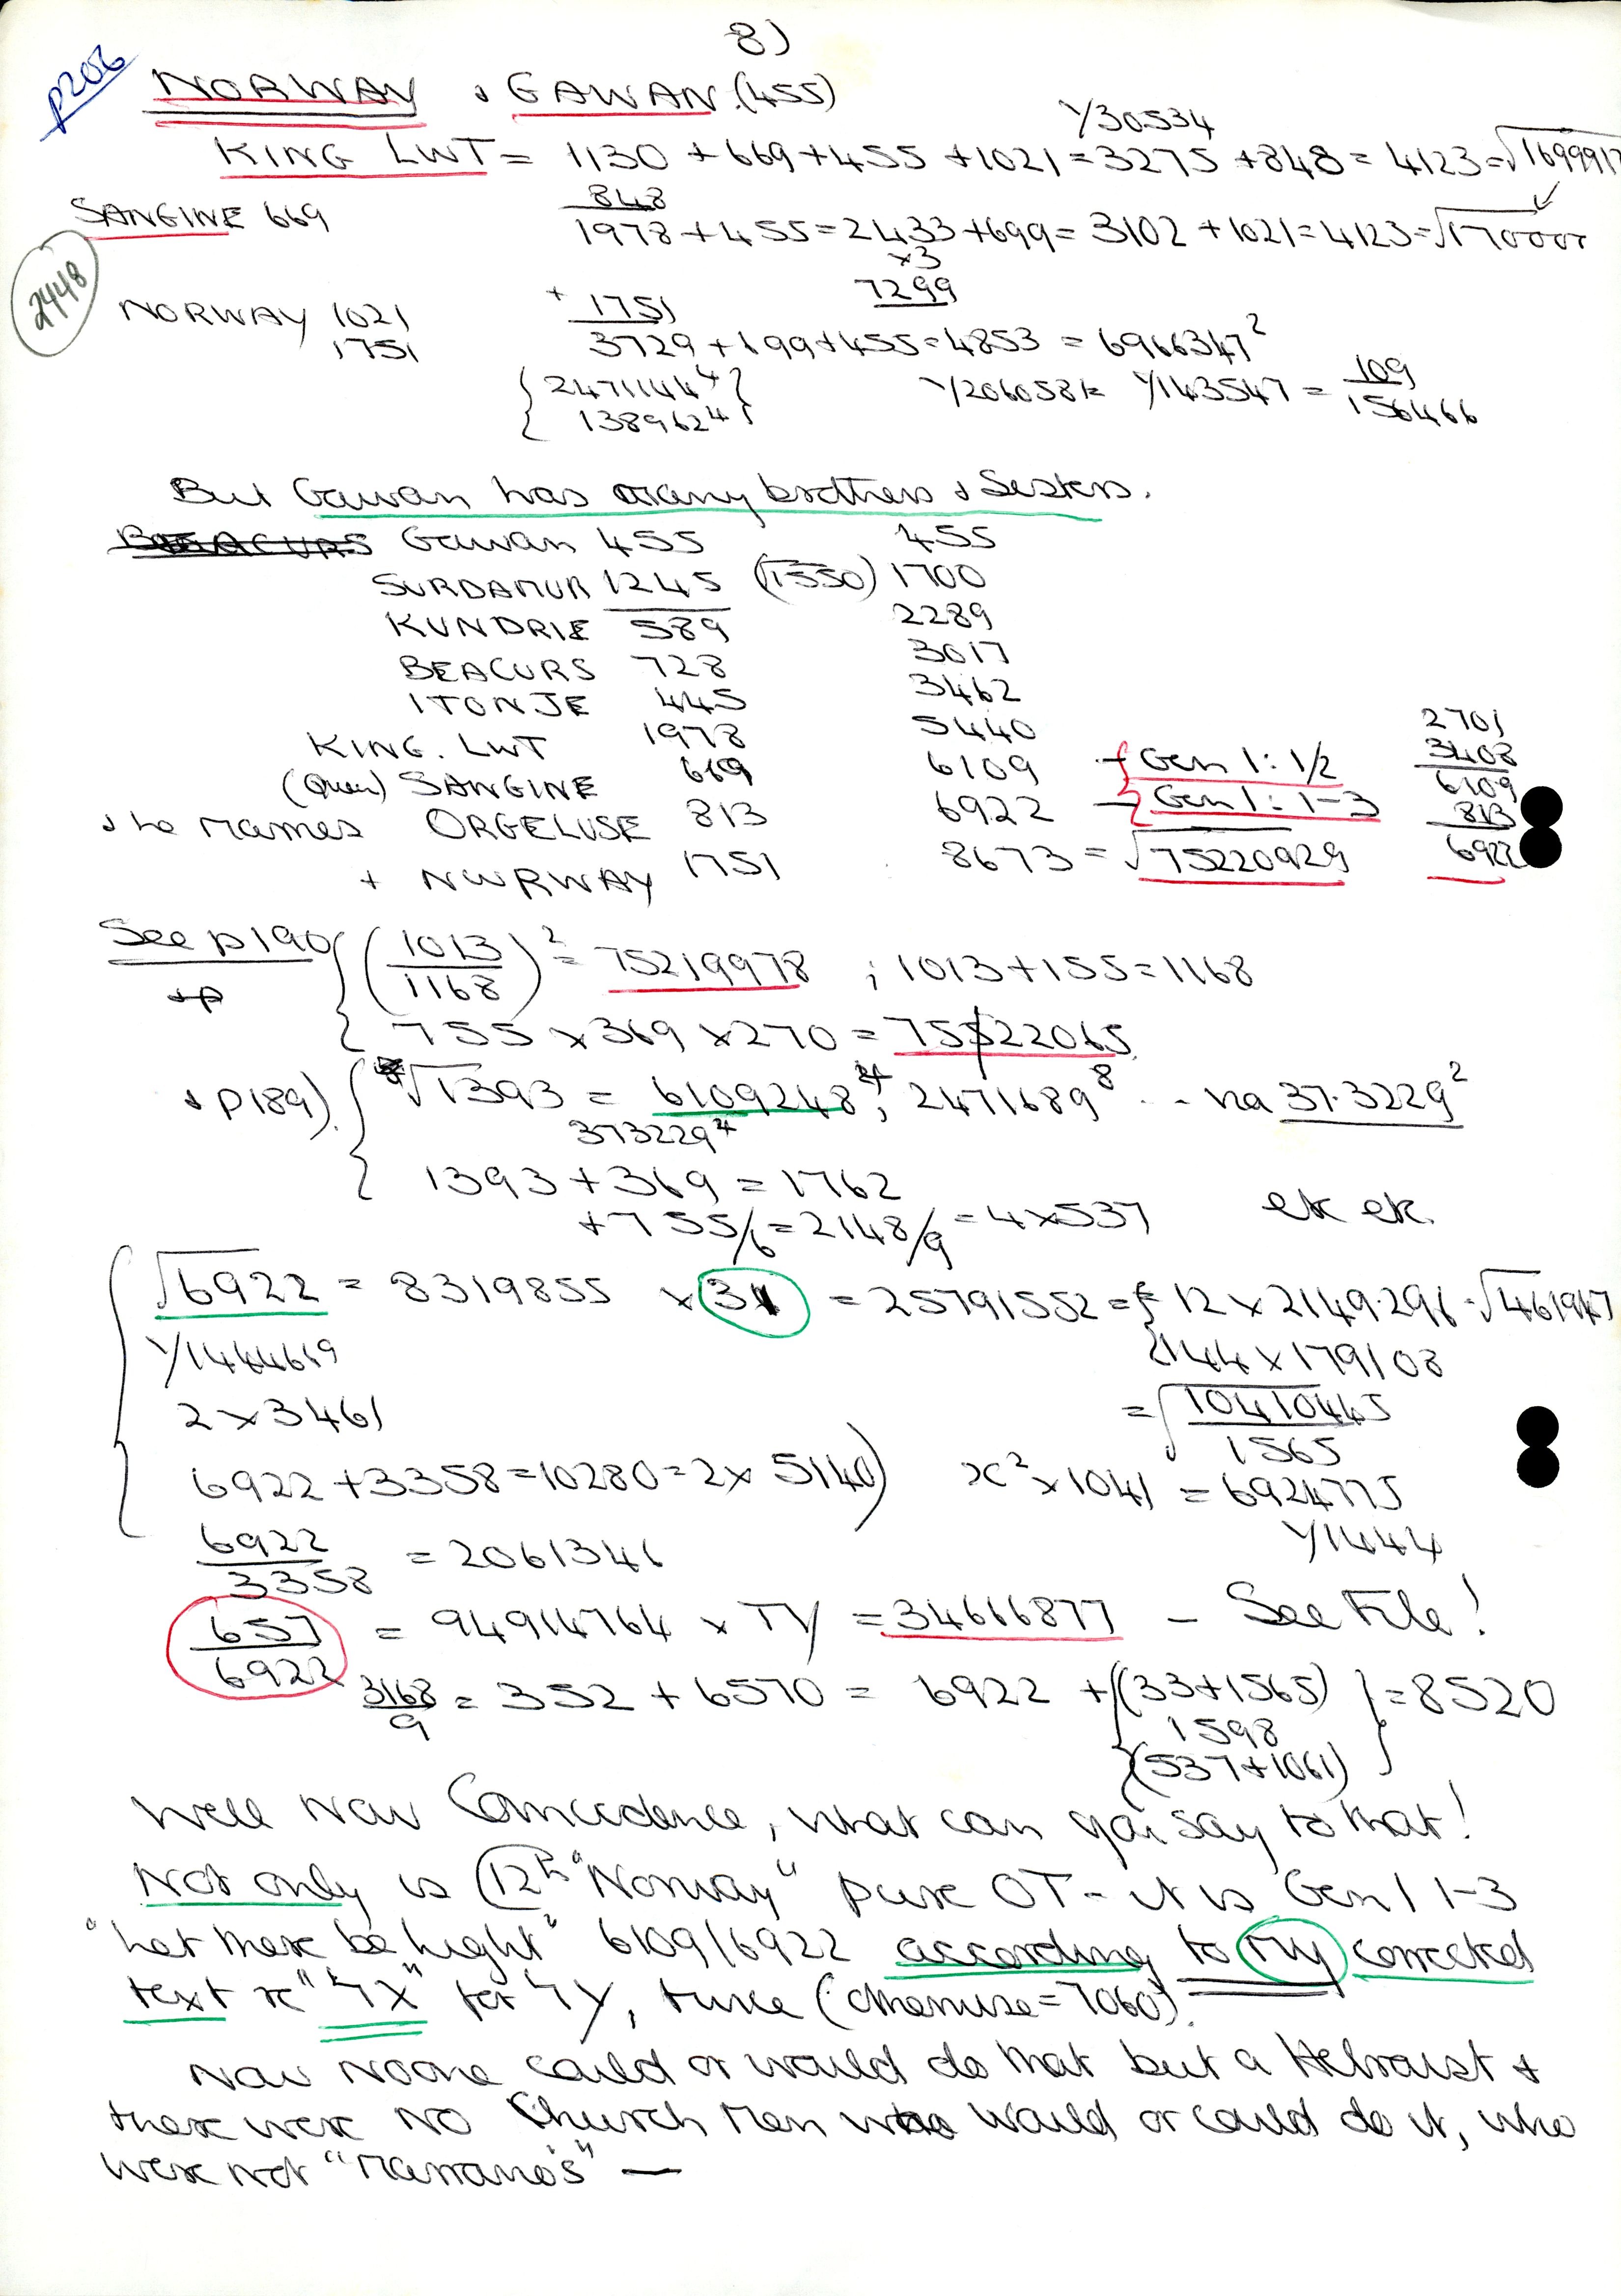 8)
p206
NORWAY & GAWAN. (455)
Y/30.534
KING LWT = 1130 + 669 + 455 + 1021 = 3275 + 848 = 4123 = √1699913
848
SANGINE 669
1978 + 455 = 2433 + 699 = 3102 + 1021 = 4123 = √170000
×3
7299
2448
NORWAY 1021
1751
+ 1751
3729 + 699 + 455 = 4853 = 6966347²
{ 2471144⁴ }
{ 138962⁴ }
Y/206058 = Y/143547 = 109/156466
But Gawan has many brothers & Sisters.
BEACURS Gawan 455 455
SURDAMUR 1245 (1550) 1700
KUNDRIE 589 2289
BEACURS 728 3017
ITONJE 445 3462
KING. LWT 1978 5440
(Quen) SANGINE 669 6109 – { Gen 1: 1/2
& he names ORGELUSE 813 6922 – { Gen 1: 1–3
+ NWRWAY 1751 8673 = √75220929
2701
3408
6109
813
6922
See p190 { (1013/1168)² = 75219978 ; 1013 + 155 = 1168
& p
755 × 369 × 270 = 75522065
& p189). { √1393 = 6109248⁴; 2471689⁸ . . – na 37.3229²
373229⁴
1393 + 369 = 1762
+ 755/6 = 2148/9 = 4 × 537 etc etc.
√6922 = 8319855 × 31 = 25791552 = { 12 × 2149.296 = √461947
Y/1444619
{ 144 × 179108
2 × 3461
= √10410445/1565
6922 + 3358 = 10280 = 2 × 5140) x² × 1041 = 6924775
Y/1444
6922/3358 = 2061346
657/6922 = 94914764 × TY = 34616877 – See File!
3168/9 = 352 + 6570 = 6922 + { (33 + 1565) } = 8520
1598
(537 + 1061)
Well Now Coincidence, what can you say to that!
Not only is 12th "Norway" pure OT – it is Gen 1 1–3
"Let there be light" 6109/6922 according to My corrected
text re "44X" for 44Y, twice (otherwise = 7060).
Now Noone could or would do that but a Hebraist &
there were NO Church Men who would or could do it, who
were not "Marrano's" —